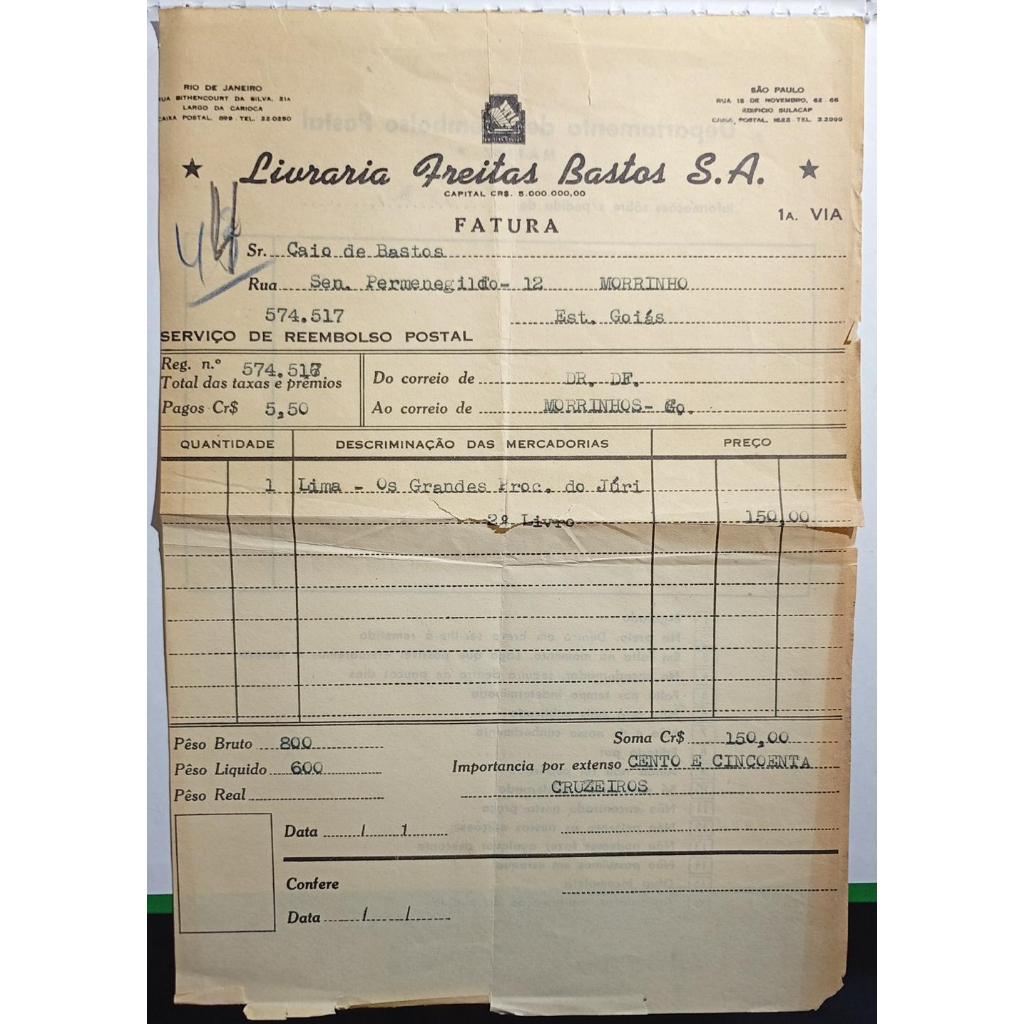 RIO DE JANEIRO
RUA BITHENCOURT DA SILVA, 21A
LARGO DA CARIOCA
CAIXA POSTAL, 899 - TEL. 22-0250
SÃO PAULO
RUA 15 DE NOVEMBRO, 62-66
EDIFICIO SULACAP
CAIXA, POSTAL, TEL. 2.2999
Livraria Freitas Bastos S.A.
CAPITAL CR$. 5.000.000,00
1A. VIA
FATURA
Sr. Caio de Bastos
Rua Sen. Permenegildo- 12 MORRINHO
574.517 Est. Goiás
SERVIÇO DE REEMBOLSO POSTAL
Reg. n.º 574.517
Total das taxas e prêmios
Pagos Cr$ 5,50
Do correio de DR. DF.
Ao correio de MORRINHOS- Go.
QUANTIDADE DESCRIMINAÇÃO DAS MERCADORIAS PREÇO
1 Lima - Os Grandes Proc. do Júri
2º Livro 150,00
Pêso Bruto 800 Soma Cr$ 150,00
Pêso Liquido 600 Importancia por extenso CENTO E CINCOENTA
Pêso Real CRUZEIROS
Data / /
Confere
Data / /